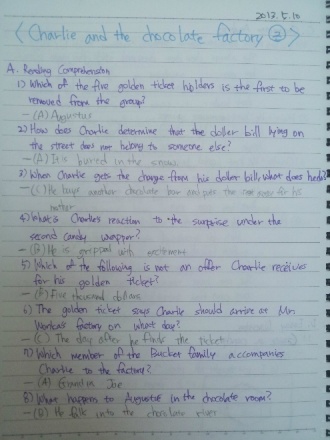 2012. 5. 10
< Charlie and the chocolate factory ② >
A. Reading Comprehension
1) Which of the five golden ticket holders is the first to be
removed from the group?
- (A) Augustus
2) How does Charlie determine that the doller bill lying on
the street does not belong to someone else?
- (A) It is buried in the snow.
3) When Charlie gets the change from his doller bill, what does he do?
- (C) He buys another chocolate bar and for his
mother
4) What is Charlie's reaction to the surprise under the
second candy wrapper?
- (B) He is gripped with excitement
5) Which of the following is not an offer Charlie receives
for his golden ticket?
- Five thousand dollars
6) The golden ticket says Charlie should arrive at Mr.
Wonka's factory on what day?
- (C) The day after he finds the ticket
7) Which member of the Bucket family accompanies
Charlie to the factory?
- (A) Grandpa Joe
8) What happens to Augustus in the chocolate room?
- (B) He falls into the chocolate river